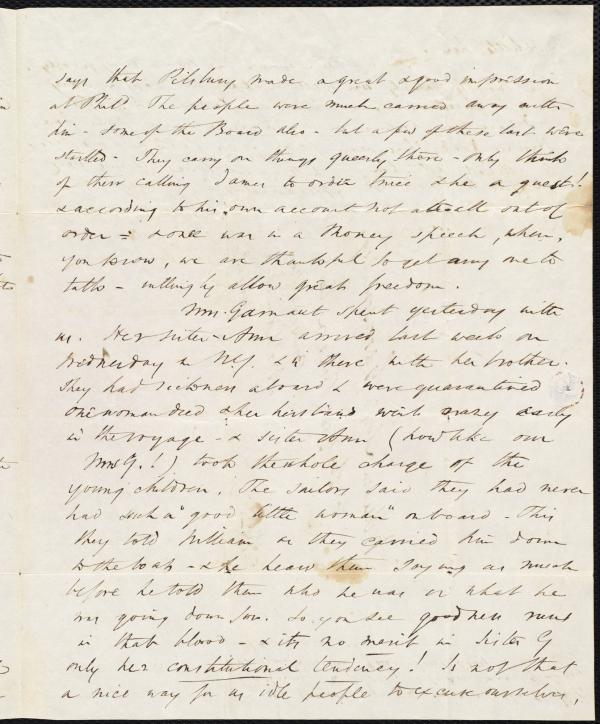 says that Pilsbury made a great & good impression
at Phild. The people were much carried away with
him - some of the Board also - but a few of these last were
startled - They carry on things queerly there - only think
of their calling James to order twice & he a guest!
& according to his own account not at all out of
order - & once was in a money speech, when,
you know, we are thankful to get any one to
talk - willingly allow great freedom.
Mrs. Garnaut spent yesterday with
us. Her sister Ann arrived last week on
Wednesday in N.Y. & is there with her brother.
They had sickness aboard & were quarantined
one woman died & her husband went crazy early
in the voyage - & sister Ann (how like our
Mrs G.!) took the whole charge of the
young children. The sailors said they had never
had such a "good little woman" on board - This
they told William as they carried him down
to the boat - & he heard them saying as much
before he told them who he was or what he
was going down for. So you see goodness runs
in that blood - & its no merit in Sister G
only her constitutional tendency! Is not that
a nice way for us idle people to excuse ourselves,